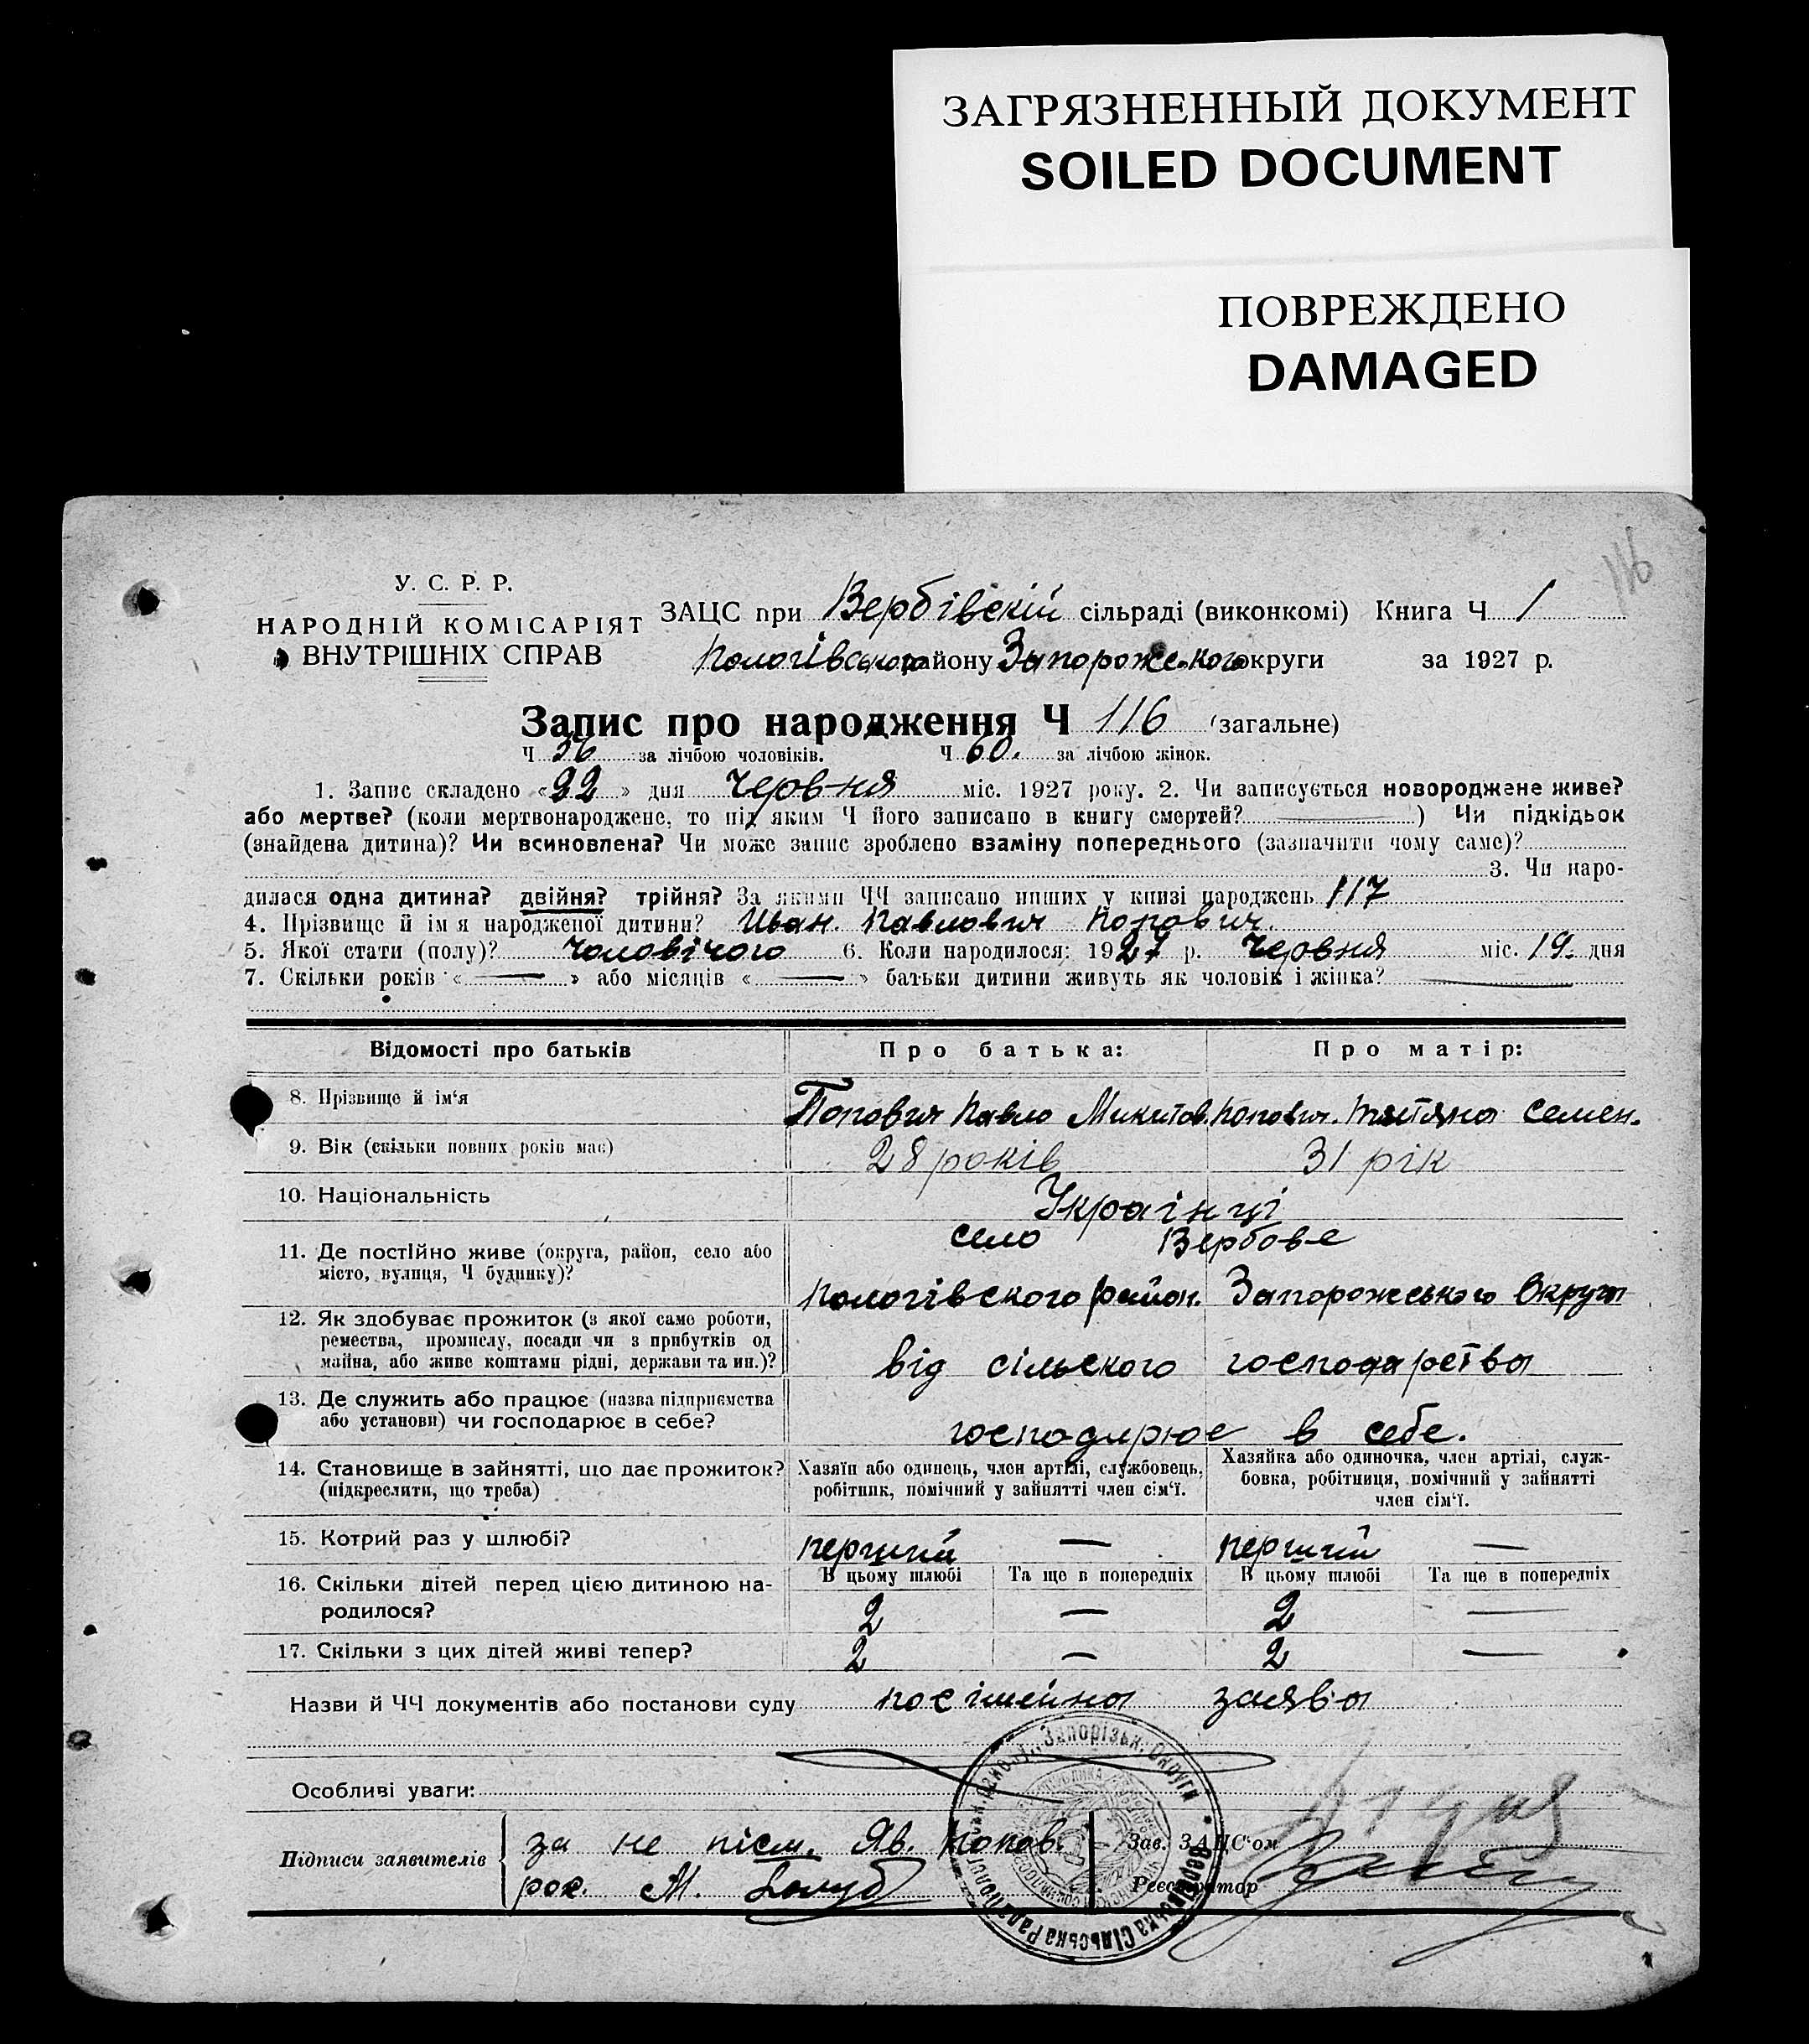 ЗАГРЯЗНЕННЫЙ ДОКУМЕНТ
SOILED DOCUMENT
ПОВРЕЖДЕНО
DAMAGED
116
У. С. Р. Р.
НАРОДНІЙ КОМІСАРІЯТ
ВНУТРІШНІХ СПРАВ
ЗАЦС при Вербівскій сільраді (виконкомі) Книга Ч 1
Пологівского району Запорожского округи за 1927 р.
Запис про народження Ч 116 (загальне)
Ч 56 за лічбою чоловіків. Ч 60. за лічбою жінок.
1. Запис складено «22» дня Червня міс. 1927 року. 2. Чи записується новороджене живе?
або мертве? (коли мертвонароджене, то під яким Ч його записано в книгу смертей? ) Чи підкідьок
(знайдена дитина)? Чи всиновлена? Чи може запис зроблено взаміну попереднього (зазначити чому саме)?
3. Чи наро-
дилася одна дитина? двійня? трійня? За якими ЧЧ записано инших у книзі народжень 117
4. Прізвище й імя народженої дитини? Иван. Павлович Попович.
5. Якої стати (полу)? Чоловічого 6. Коли народилося: 1927 р. Червня міс. 19. дня
7. Скільки років « — » або місяців « — » батьки дитини живуть як чоловік і жінка? —
Відомості про батьків Про батька: Про матір:
8. Прізвище й ім‘я Попович Павло Микитов. Попович. Татяна Семен.
9. Вік (скільки повних років має) 28 років 31 рік
10. Національність Українці
11. Де постійно живе (округа, район, село або село Вербове
місто, вулиця, Ч будинку)? Пологівского район. Запорожського Округи
12. Як здобуває прожиток (з якої саме роботи,
ремества, промислу, посади чи з прибутків од
майна, або живе коштами рідні, держави та ин.)? від сільского господарства
13. Де служить або працює (назва підприємства
або установи) чи господарює в себе? господарює в себе.
14. Становище в зайнятті, що дає прожиток? Хазяїн або одинець, член артілі, службовець, Хазяйка або одиночка, член артілі, служ-
(підкреслити, що треба) робітник, помічний у зайнятті член сім‘ї. бовка, робітниця, помічний у зайнятті
член сім‘ї.
15. Котрий раз у шлюбі? перший — перший —
16. Скільки дітей перед цією дитиною на- В цьому шлюбі Та ще в попередніх В цьому шлюбі Та ще в попередніх
родилося? 2 — 2 —
17. Скільки з цих дітей живі тепер? 2 — 2 —
Назви й ЧЧ документів або постанови суду посімейна заява
Особливі уваги:
Підписи заявителів за не писм. Яв. Попов. Зав. ЗАЦС‘ом
рос. М. Голуб Реєстратор
Вербівська Сільська Рада Запорізьк. Округи